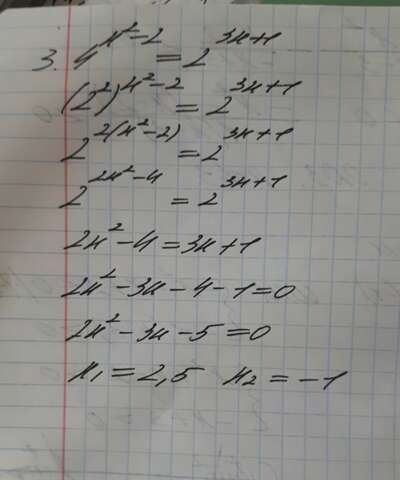 3. 4^(x²-2) = 2^(3x+1)
(2²)^(x²-2) = 2^(3x+1)
2^(2(x²-2)) = 2^(3x+1)
2^(2x²-4) = 2^(3x+1)
2x²-4=3x+1
2x²-3x-4-1=0
2x²-3x-5=0
x₁=2,5 x₂=-1